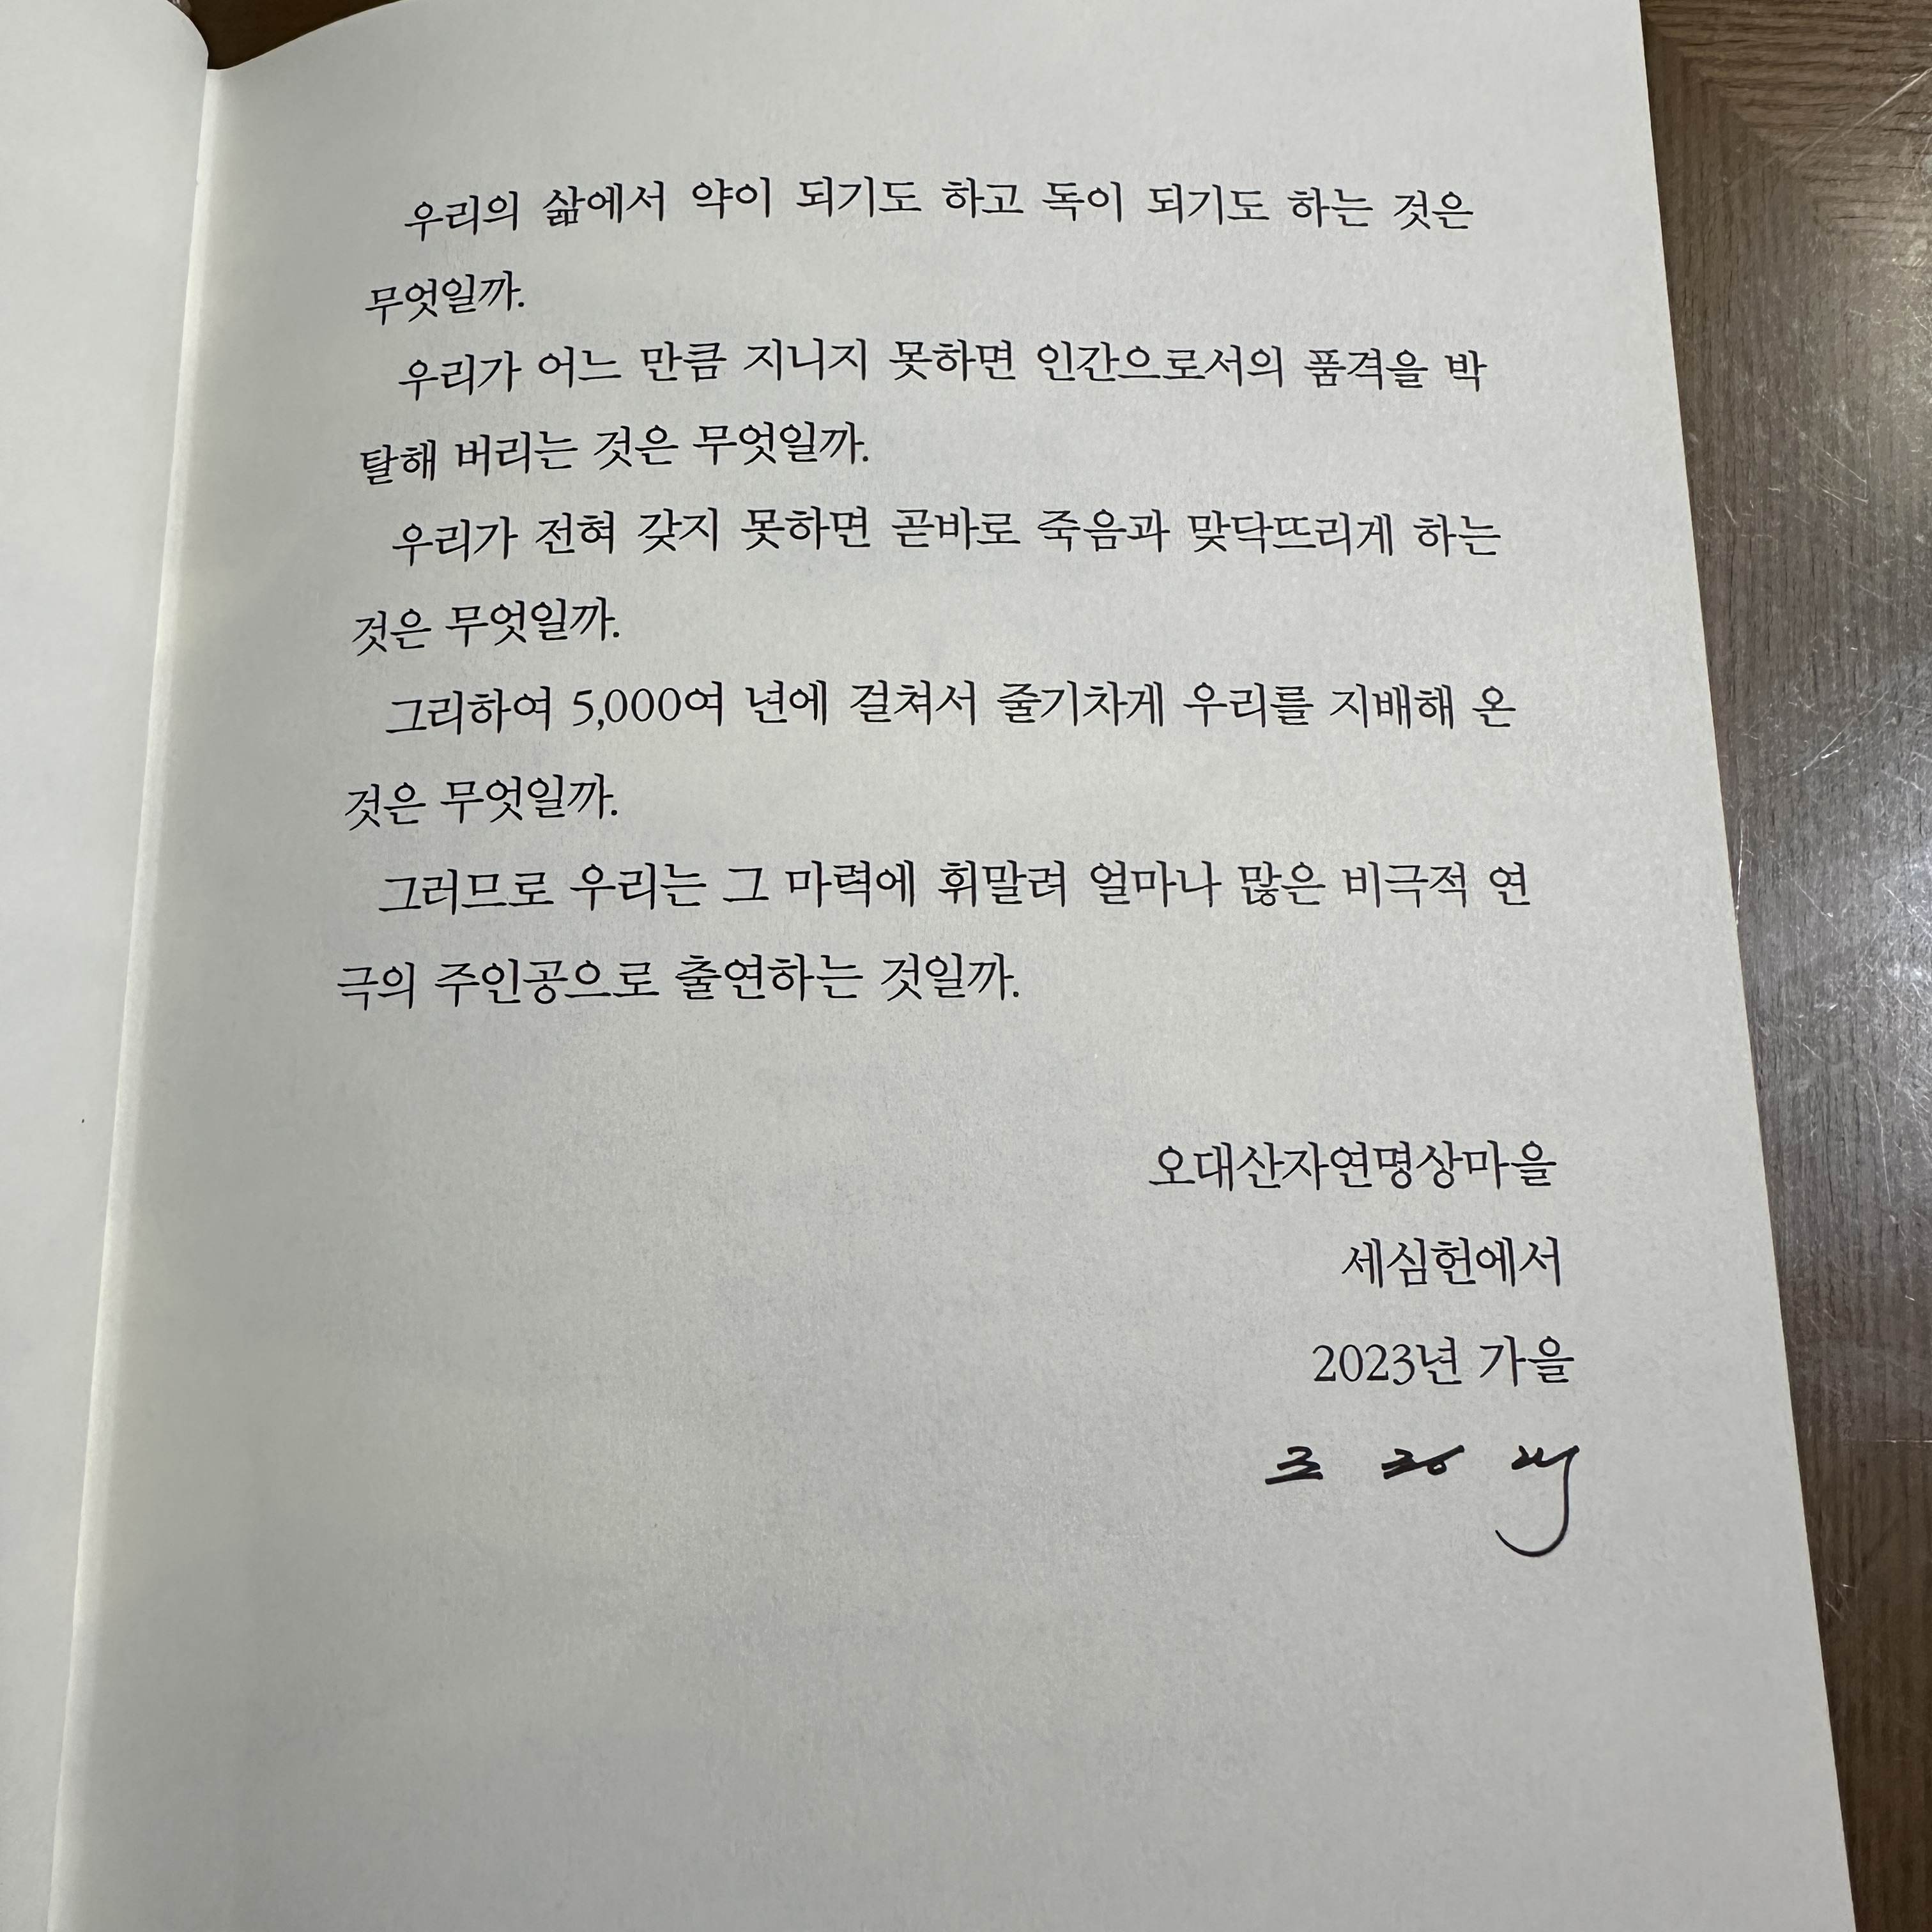 우리의 삶에서 약이 되기도 하고 독이 되기도 하는 것은
무엇일까.
우리가 어느 만큼 지니지 못하면 인간으로서의 품격을 박
탈해 버리는 것은 무엇일까.
우리가 전혀 갖지 못하면 곧바로 죽음과 맞닥뜨리게 하는
것은 무엇일까.
그리하여 5,000여 년에 걸쳐서 줄기차게 우리를 지배해 온
것은 무엇일까.
그러므로 우리는 그 마력에 휘말려 얼마나 많은 비극적 연
극의 주인공으로 출연하는 것일까.
오대산자연명상마을
세심헌에서
2023년 가을